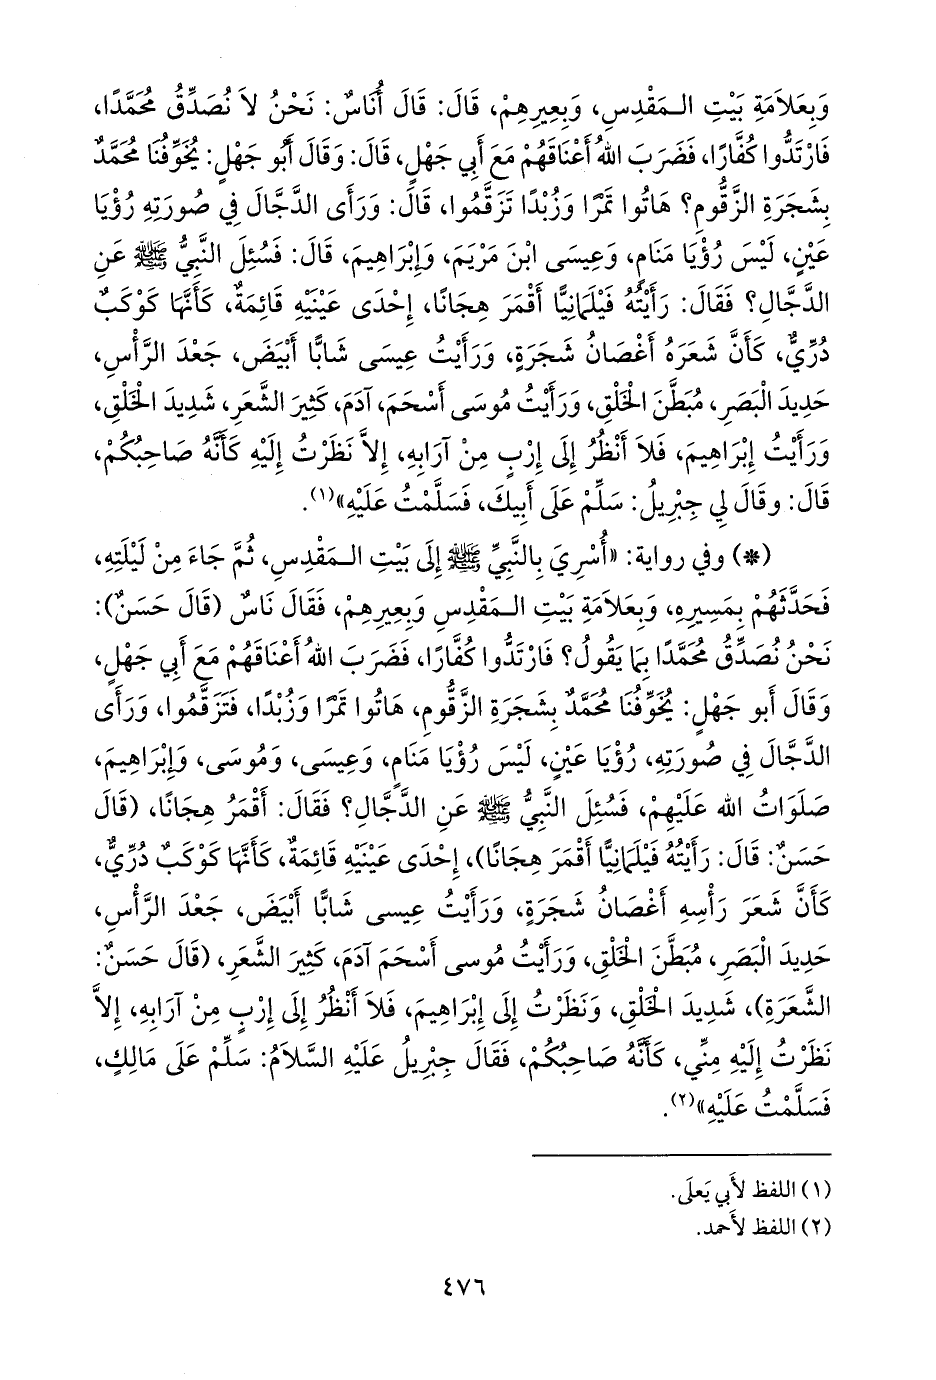 وَبِعَلاَمَةِ بَيْتِ الـمَقْدِسِ، وَبِعِيرِهِمْ، قَالَ: قَالَ أُنَاسٌ: نَحْنُ لاَ نُصَدِّقُ مُحَمَّدًا،
فَارْتَدُّوا كُفَّارًا، فَضَرَبَ اللهُ أَعْنَاقَهُمْ مَعَ أَبِي جَهْلٍ، قَالَ: وَقَالَ أَبُو جَهْلٍ: يُخَوِّفُنَا مُحَمَّدٌ
بِشَجَرَةِ الزَّقُّومِ؟ هَاتُوا تَمْرًا وَزُبْدًا تَزَقَّمُوا، قَالَ: وَرَأَى الدَّجَّالَ فِي صُورَتِهِ رُؤْيَا
عَيْنٍ، لَيْسَ رُؤْيَا مَنَامٍ، وَعِيسَى ابْنَ مَرْيَمَ، وَإِبْرَاهِيمَ، قَالَ: فَسُئِلَ النَّبِيُّ ﷺ عَنِ
الدَّجَّالِ؟ فَقَالَ: رَأَيْتُهُ فَيْلَمَانِيًّا أَقْمَرَ هِجَانًا، إِحْدَى عَيْنَيْهِ قَائِمَةٌ، كَأَنَّهَا كَوْكَبٌ
دُرِّيٌّ، كَأَنَّ شَعَرَهُ أَغْصَانُ شَجَرَةٍ، وَرَأَيْتُ عِيسَى شَابًّا أَبْيَضَ، جَعْدَ الرَّأْسِ،
حَدِيدَ الْبَصَرِ، مُبَطَّنَ الْخَلْقِ، وَرَأَيْتُ مُوسَى أَسْحَمَ، آدَمَ، كَثِيرَ الشَّعَرِ، شَدِيدَ الْخَلْقِ،
وَرَأَيْتُ إِبْرَاهِيمَ، فَلاَ أَنْظُرُ إِلَى إِرْبٍ مِنْ آرَابِهِ، إِلاَّ نَظَرْتُ إِلَيْهِ كَأَنَّهُ صَاحِبُكُمْ،
قَالَ: وقَالَ لِي جِبْرِيلُ: سَلِّمْ عَلَى أَبِيكَ، فَسَلَّمْتُ عَلَيْهِ»(١).
(*) وفي رواية: «أُسْرِيَ بِالنَّبِيِّ ﷺ إِلَى بَيْتِ الـمَقْدِسِ، ثُمَّ جَاءَ مِنْ لَيْلَتِهِ،
فَحَدَّثَهُمْ بِمَسِيرِهِ، وَبِعَلاَمَةِ بَيْتِ الـمَقْدِسِ وَبِعِيرِهِمْ، فَقَالَ نَاسٌ (قَالَ حَسَنٌ):
نَحْنُ نُصَدِّقُ مُحَمَّدًا بِمَا يَقُولُ؟ فَارْتَدُّوا كُفَّارًا، فَضَرَبَ اللهُ أَعْنَاقَهُمْ مَعَ أَبِي جَهْلٍ،
وَقَالَ أَبو جَهْلٍ: يُخَوِّفُنَا مُحَمَّدٌ بِشَجَرَةِ الزَّقُّومِ، هَاتُوا تَمْرًا وَزُبْدًا، فَتَزَقَّمُوا، وَرَأَى
الدَّجَّالَ فِي صُورَتِهِ، رُؤْيَا عَيْنٍ، لَيْسَ رُؤْيَا مَنَامٍ، وَعِيسَى، وَمُوسَى، وَإِبْرَاهِيمَ،
صَلَوَاتُ الله عَلَيْهِمْ، فَسُئِلَ النَّبِيُّ ﷺ عَنِ الدَّجَّالِ؟ فَقَالَ: أَقْمَرُ هِجَانًا، (قَالَ
حَسَنٌ: قَالَ: رَأَيْتُهُ فَيْلَمَانِيًّا أَقْمَرَ هِجَانًا)، إِحْدَى عَيْنَيْهِ قَائِمَةٌ، كَأَنَّهَا كَوْكَبٌ دُرِّيٌّ،
كَأَنَّ شَعَرَ رَأْسِهِ أَغْصَانُ شَجَرَةٍ، وَرَأَيْتُ عِيسى شَابًّا أَبْيَضَ، جَعْدَ الرَّأْسِ،
حَدِيدَ الْبَصَرِ، مُبَطَّنَ الْخَلْقِ، وَرَأَيْتُ مُوسى أَسْحَمَ آدَمَ، كَثِيرَ الشَّعَرِ، (قَالَ حَسَنٌ:
الشَّعَرَةِ)، شَدِيدَ الْخَلْقِ، وَنَظَرْتُ إِلَى إِبْرَاهِيمَ، فَلاَ أَنْظُرُ إِلَى إِرْبٍ مِنْ آرَابِهِ، إِلاَّ
نَظَرْتُ إِلَيْهِ مِنِّي، كَأَنَّهُ صَاحِبُكُمْ، فَقَالَ جِبْرِيلُ عَلَيْهِ السَّلاَمُ: سَلِّمْ عَلَى مَالِكٍ،
فَسَلَّمْتُ عَلَيْهِ»(٢).
(١) اللفظ لأَبي يَعلَى.
(٢) اللفظ لأَحمد.
٤٧٦